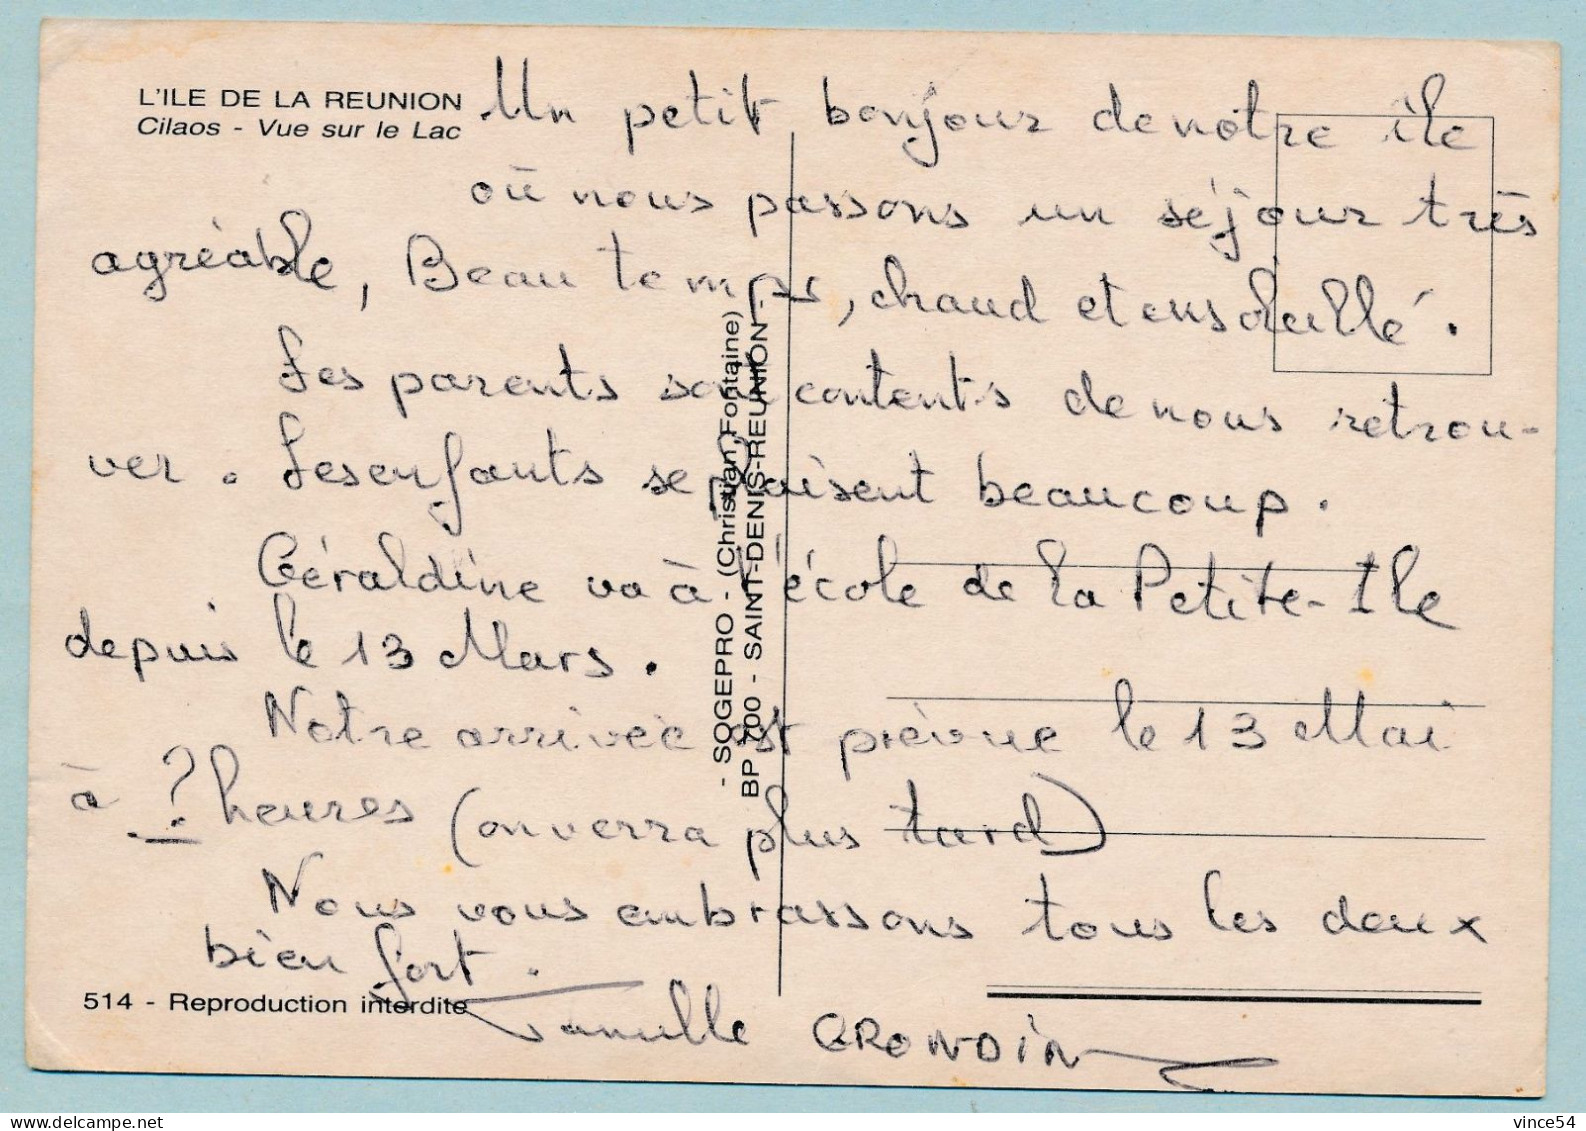 L'ILE DE LA REUNION
Cilaos - Vue sur le Lac
Un petit bonjour de notre île
où nous passons un séjour très
agréable, Beau temps, chaud et ensoleillé.
Les parents sont contents de nous retrou-
ver. Les enfants se plaisent beaucoup.
Géraldine va à l'école de la Petite-Ile
depuis le 13 Mars.
Notre arrivée est prévue le 13 Mai
à ? heures (on verra plus tard)
Nous vous embrassons tous les deux
bien fort.
Famille GRONDIN
514 - Reproduction interdite
- SOGEPRO - (Christian Fontaine)
BP 700 - SAINT-DENIS-REUNION -
vince54